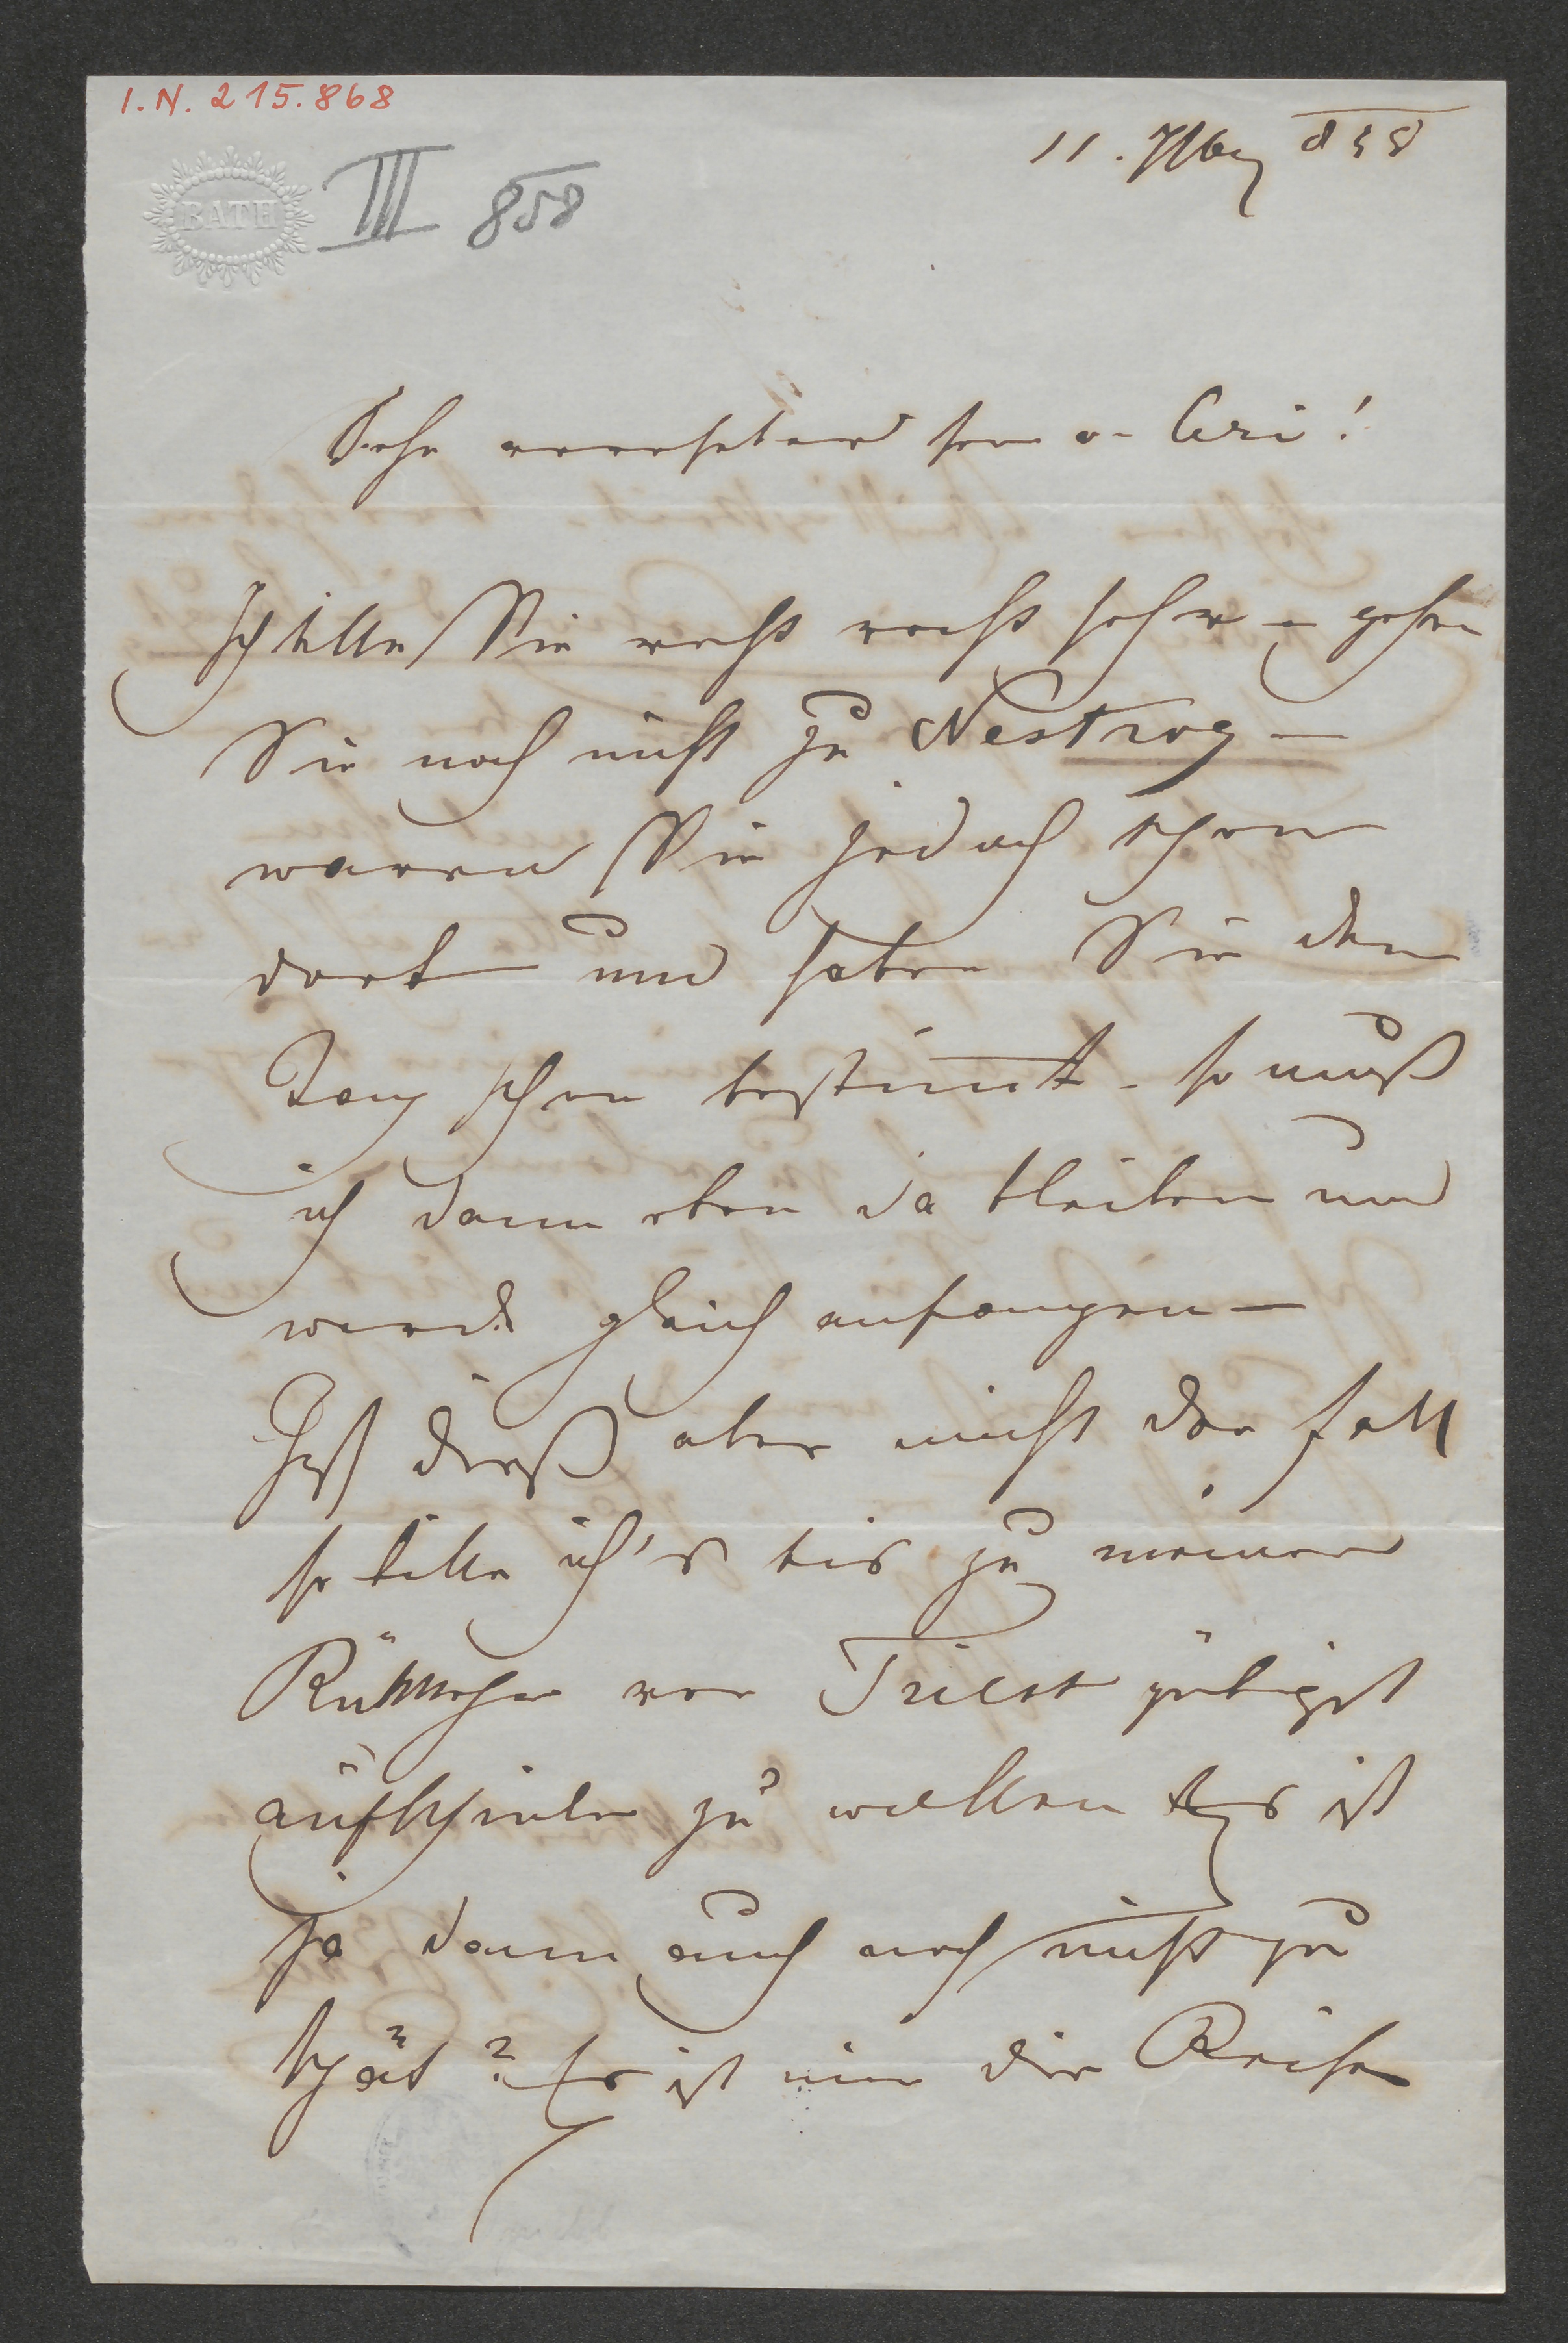 I.N. 215.868
BATH
III 858
11. März 858
Sehr verehrter Herr v. Cori!
Ich bitte Sie recht recht sehr – gehen
Sie noch nicht zu Nestroy –
waren Sie jedoch schon
dort und haben Sie den
Tag schon bestimmt – so muß
ich dann eben da bleiben und
werde gleich anfangen –
Ist dieß aber nicht der Fall
so bitte ich's bis zu meiner
Rückkehr von Triest gütigst
aufschieben zu wollen Es ist
ja dann auch noch nicht zu
spät? Es ist nur die Reise